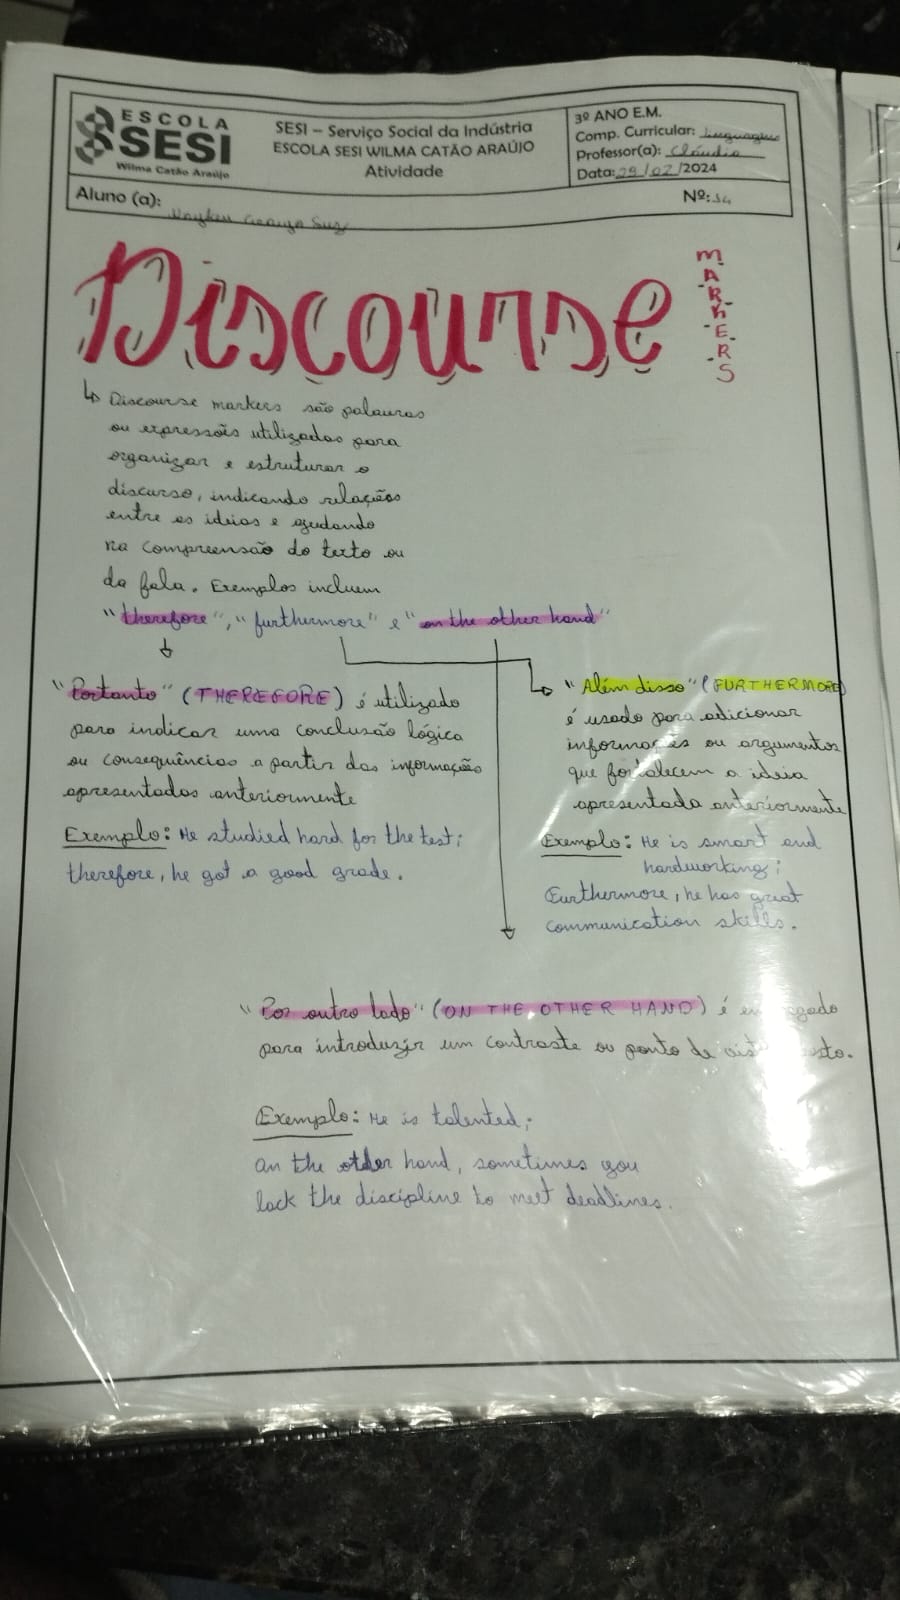 ESCOLA
SESI
Wilma Catão Araújo
SESI – Serviço Social da Indústria
ESCOLA SESI WILMA CATÃO ARAÚJO
Atividade
3º ANO E.M.
Comp. Curricular: Linguagens
Professor(a): Cláudia
Data: 29/02/2024
Aluno (a):
Nº: 34
Discourse
MARKERS
↳ Discourse markers são palavras
ou expressões utilizadas para
organizar e estruturar o
discurso, indicando relações
entre as ideias e ajudando
na compreensão do texto ou
da fala. Exemplos incluem
"therefore", "furthermore" e "on the other hand"
"Portanto" (THEREFORE) é utilizado
para indicar uma conclusão lógica
ou consequências a partir das informações
apresentadas anteriormente
Exemplo: He studied hard for the test;
therefore, he got a good grade.
"Além disso" (FURTHERMORE)
é usado para adicionar
informações ou argumentos
que fortalecem a ideia
apresentada anteriormente
Exemplo: He is smart and
hardworking;
Furthermore, he has great
communication skills.
"Por outro lado" (ON THE OTHER HAND) é
para introduzir um contraste ou ponto de
Exemplo: He is talented;
on the other hand, sometimes you
lack the discipline to meet deadlines.